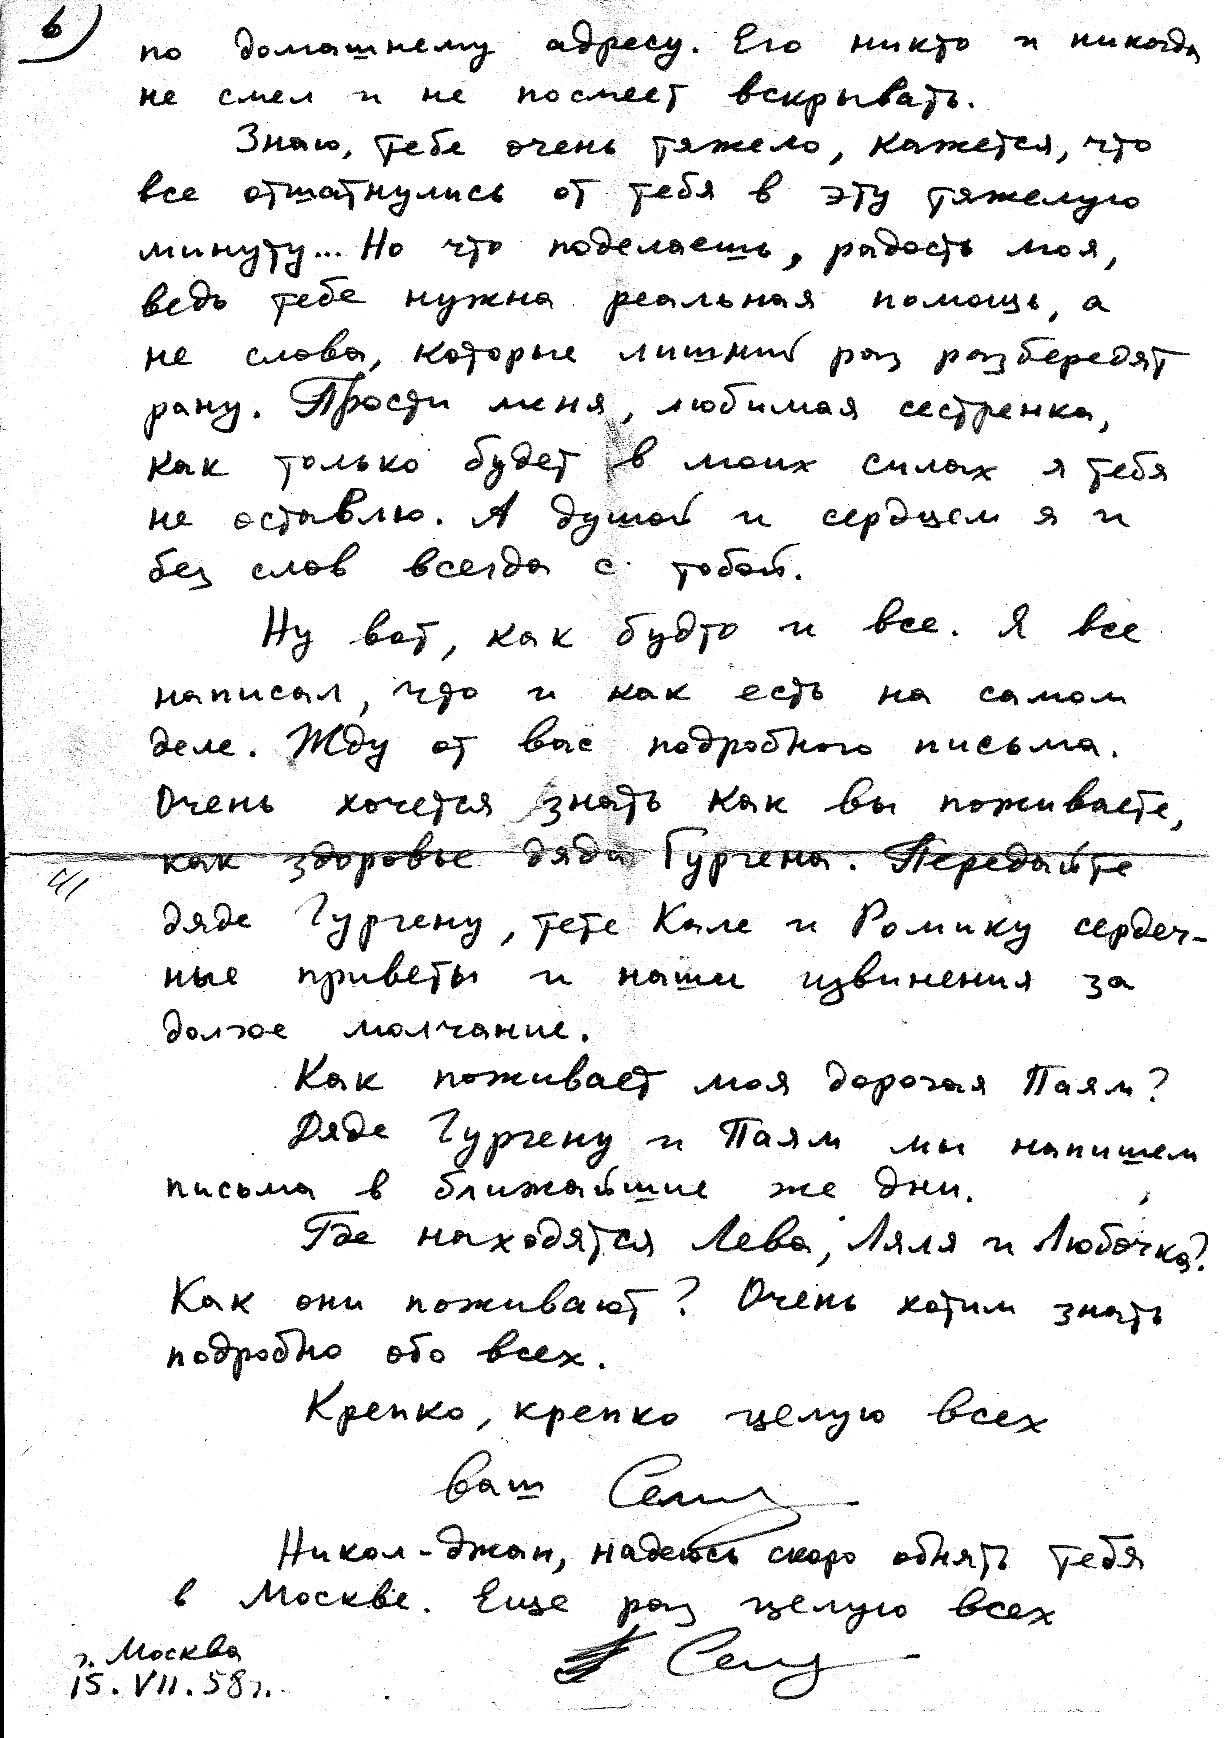 6)
по домашнему адресу. Его никто и никогда
не смел и не посмеет вскрывать.
Знаю, тебе очень тяжело, кажется, что
все отшатнулись от тебя в эту тяжелую
минуту... Но что поделаешь, радость моя,
ведь тебе нужна реальная помощь, а
не слова, которые лишний раз разбередят
рану. Прости меня, любимая сестренка,
как только будет в моих силах я тебя
не оставлю. А душой и сердцем я и
без слов всегда с тобой.
Ну вот, как будто и все. Я все
написал, что и как есть на самом
деле. Жду от вас подробного письма.
Очень хочется знать как вы поживаете,
как здоровье дяди Гургена. Передайте
дяде Гургену, тете Кале и Ромику сердеч-
ные приветы и наши извинения за
долгое молчание.
Как поживает моя дорогая Паям?
Дяде Гургену и Паям мы напишем
письма в ближайшие же дни.
Где находятся Лева, Ляля и Любочка?
Как они поживают? Очень хотим знать
подробно обо всех.
Крепко, крепко целую всех
ваш
Никол-джан, надеюсь скоро обнять тебя
в Москве. Еще раз целую всех
г. Москва
15.VII.58г.